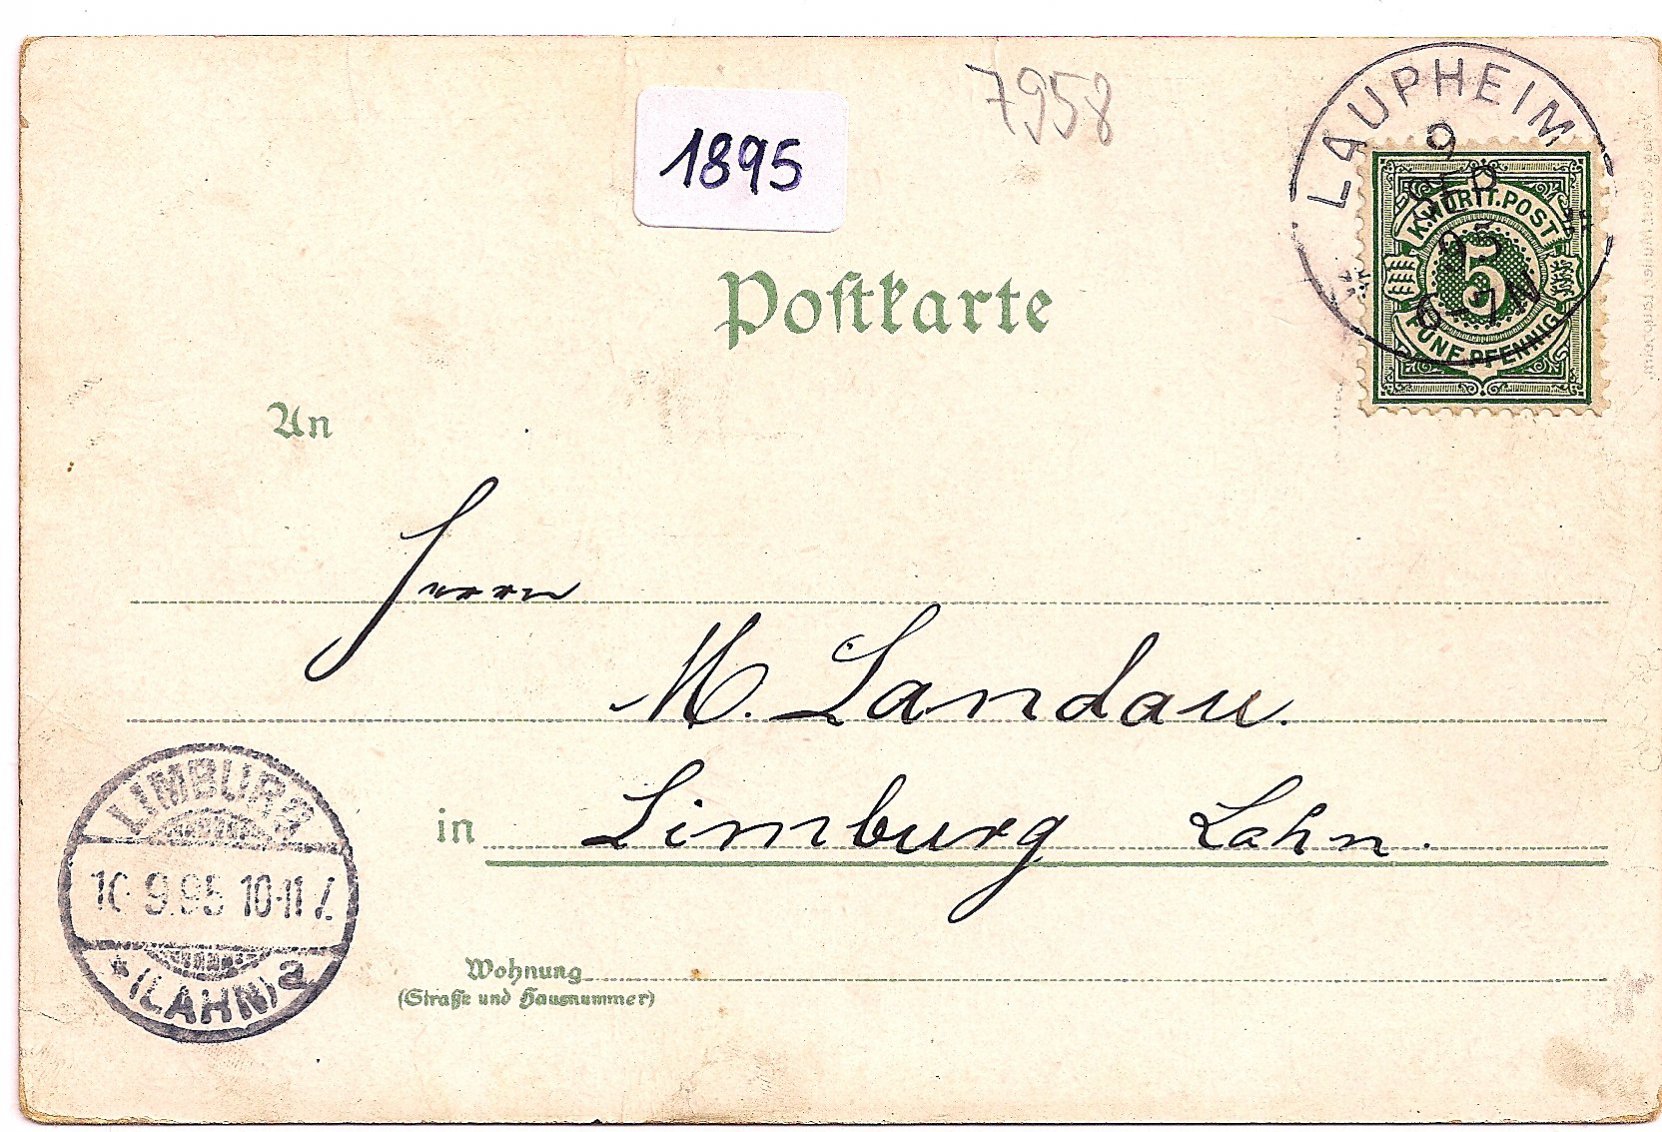 7958
1895
LAUPHEIM
9
SEP
95
6-7 N
K.WÜRTT.POST
5
FÜNF PFENNIG
Postkarte
An
Herrn
M. Landau.
in Limburg Lahn.
LIMBURG
10 9.95 10-11
* (LAHN) a
Wohnung
(Straße und Hausnummer)